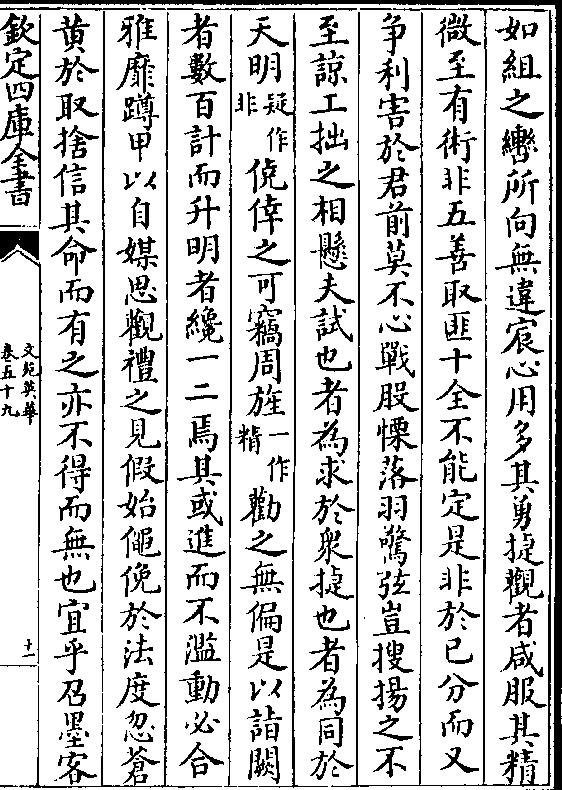 如組之轡所向無違宸心用多其勇捷觀者咸服其精
微至有術非五善取匪十全不能定是非於已分而又
争利害於君前莫不心戰股慄落羽驚弦豈搜揚之不
至諒工拙之相懸夫試也者為求於衆捷也者為同於
天明疑作非僥倖之可竊周旌一作精勸之無偏是以詣闕
者數百計而升明者纔一二焉其或進而不濫動必合
雅靡蹲甲以自媒思觀禮之見假始僶俛於法度忽蒼
黄於取捨信其命而有之亦不得而無也宜乎召墨客
欽定四庫全書
文苑英華
卷五十九
十一